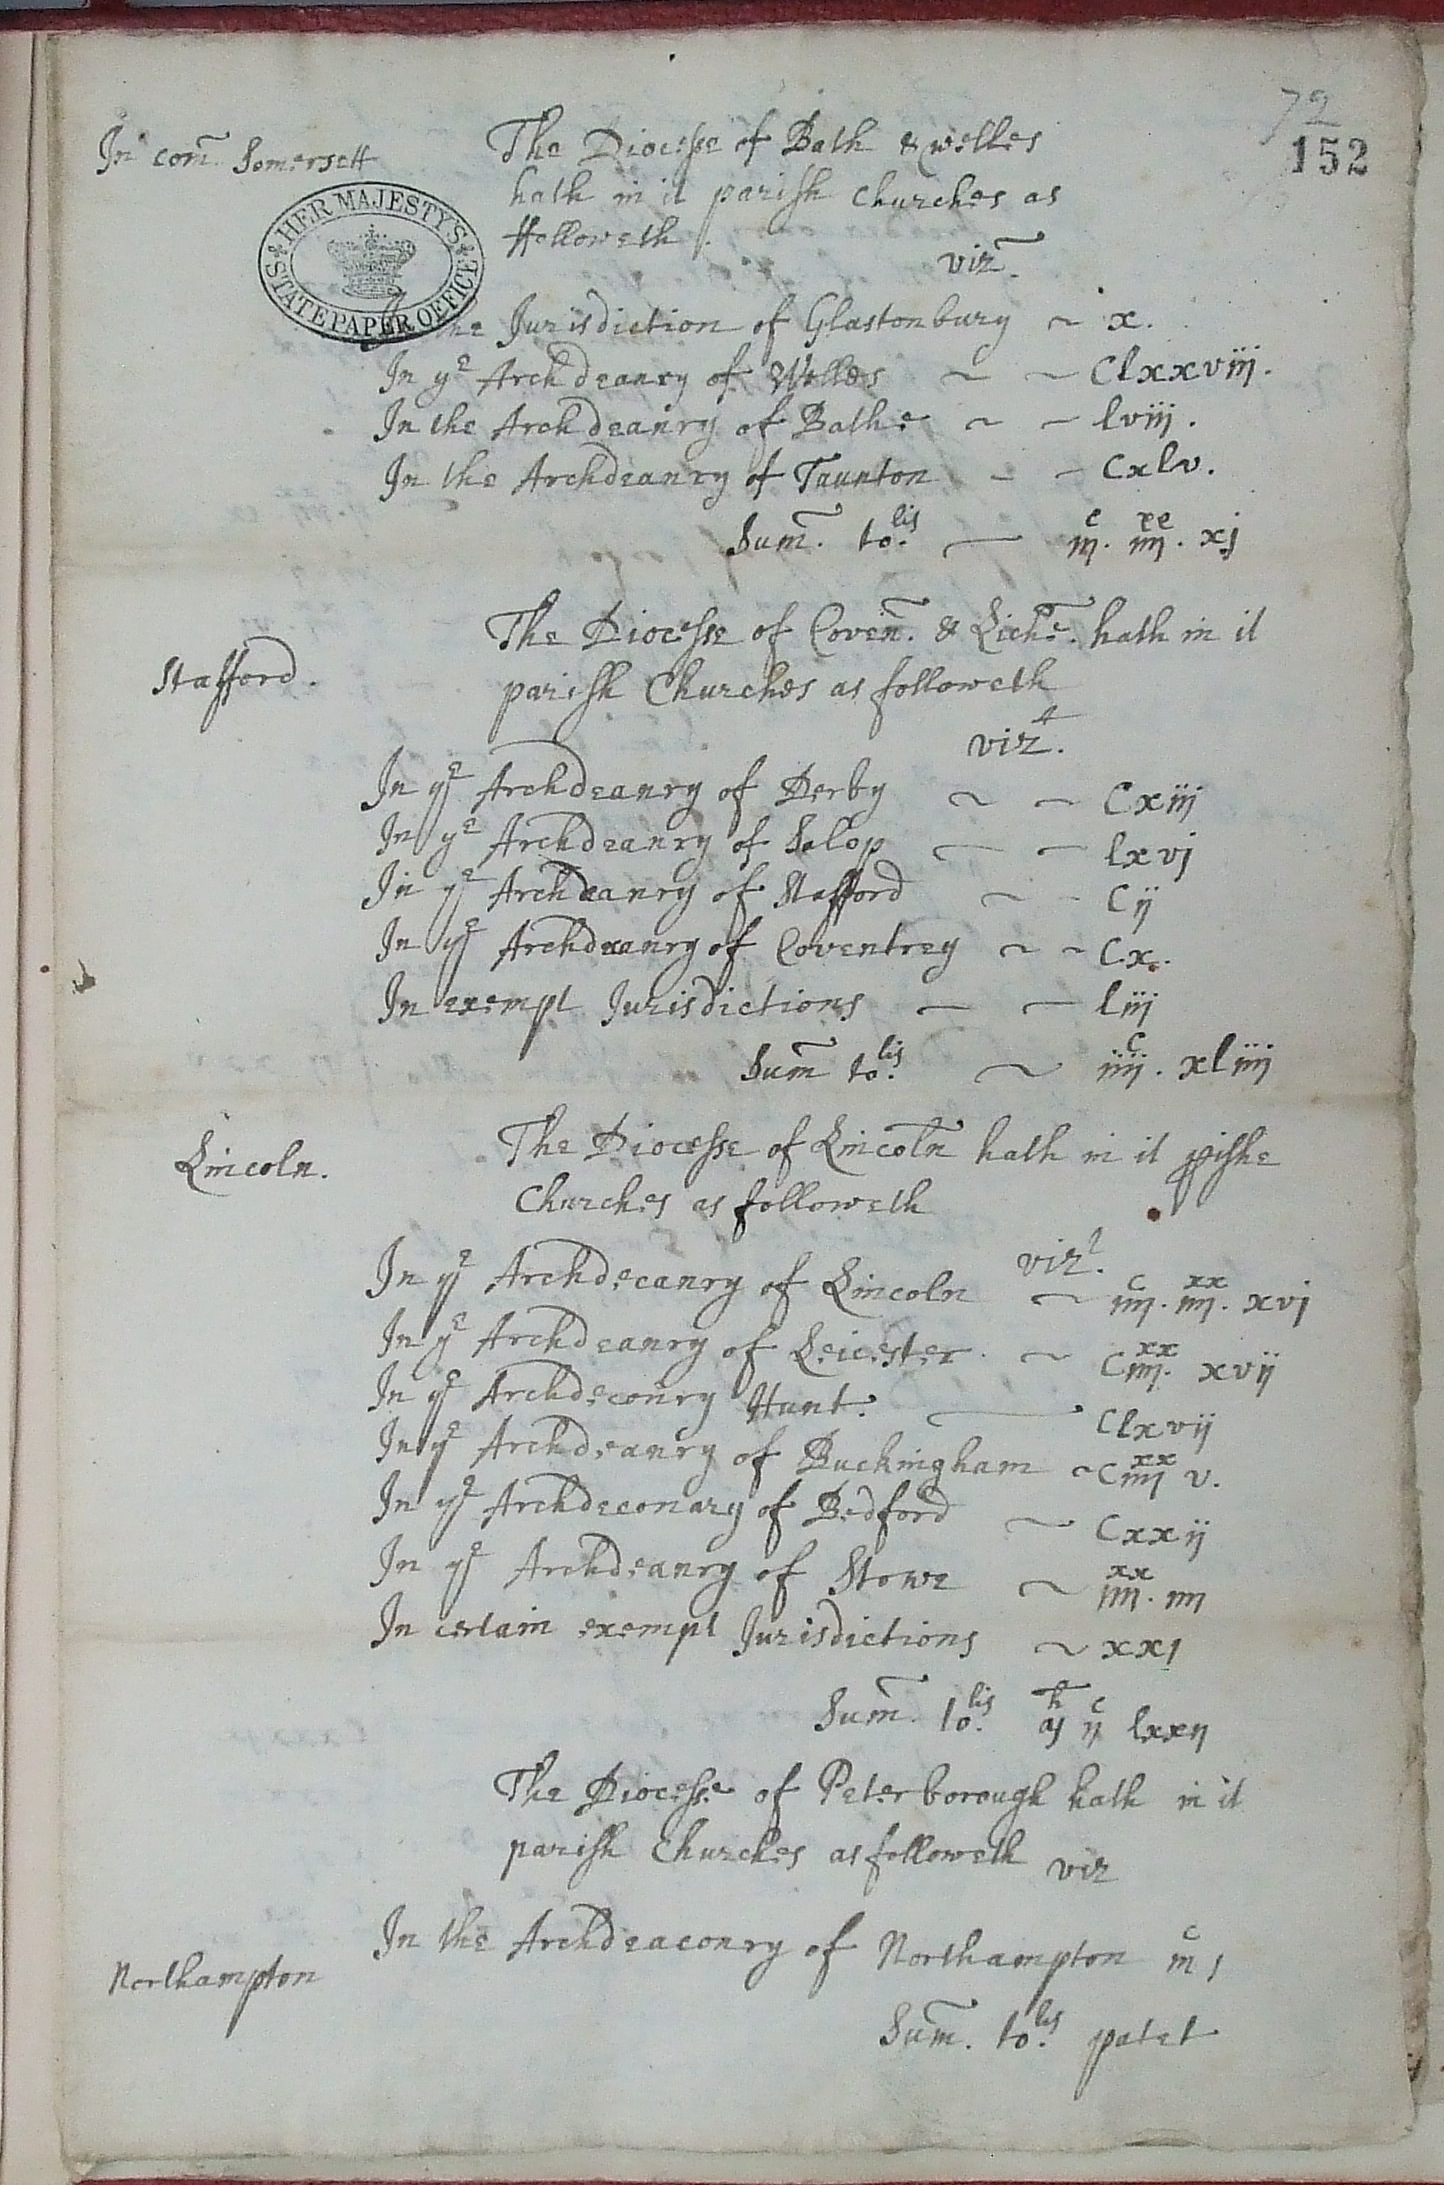 72
152
In com̃ Somersett
The Diocesse of Bath & Welles
hath in it parish Churches as
ffolloweth.
viz̃.
HER MAJESTY'S STATE PAPER OFFICE
the Jurisdiction of Glastonbury ~ x.
In yᵉ Archdeanry of Welles ~ ~ Clxxviij.
In the Archdeanry of Bathe ~ – lviij.
In the Archdeanry of Taunton – – Cxlv.
Sum̃. toˡⁱˢ. — iijᶜ. iiijˣˣ. xj
Stafford.
The Diocesse of Coveñ. & Lichẽ. hath in it
parish Churches as followeth
vizᵗ.
In yᵉ Archdeanry of Derby ~ – Cxiij
In yᵉ Archdeanry of Salop — – lxvj
In yᵉ Archdeanry of Stafford ~ - Cij
In yᵉ Archdeanry of Coventrey ~ ~ C.x.
In exempt Jurisdictions – – liij
Sum̃ toˡⁱˢ. ~ iiijᶜ. xliiij
Lincoln.
The Diocesse of Lincolñ hath in it pishe
Churches as followeth
vizᵗ.
In yᵉ Archdecanry of Lincoln ~ iiijᶜ. iiijˣˣ. xvj
In yᵉ Archdeanry of Leicester. ~ Ciiijˣˣ. xvij
In yᵉ Archdeconry Hunt. — Clxvij
In yᵉ Archdeanry of Buckingham ~ Ciiijˣˣ v.
In yᵉ Archdeconary of Bedford ~ Cxxij
In yᵉ Archdeanry of Stowe ~ iiijˣˣ. iiij
In certain exempt Jurisdictions ~ xxj
Sum̃. toˡⁱˢ. ijᶜ lxxij
The Diocesse of Peterborough hath in it
parish Churches as followeth viz
Northampton
In the Archdeaconry of Northampton iijᶜ j
Sum̃. toˡⁱˢ. patet